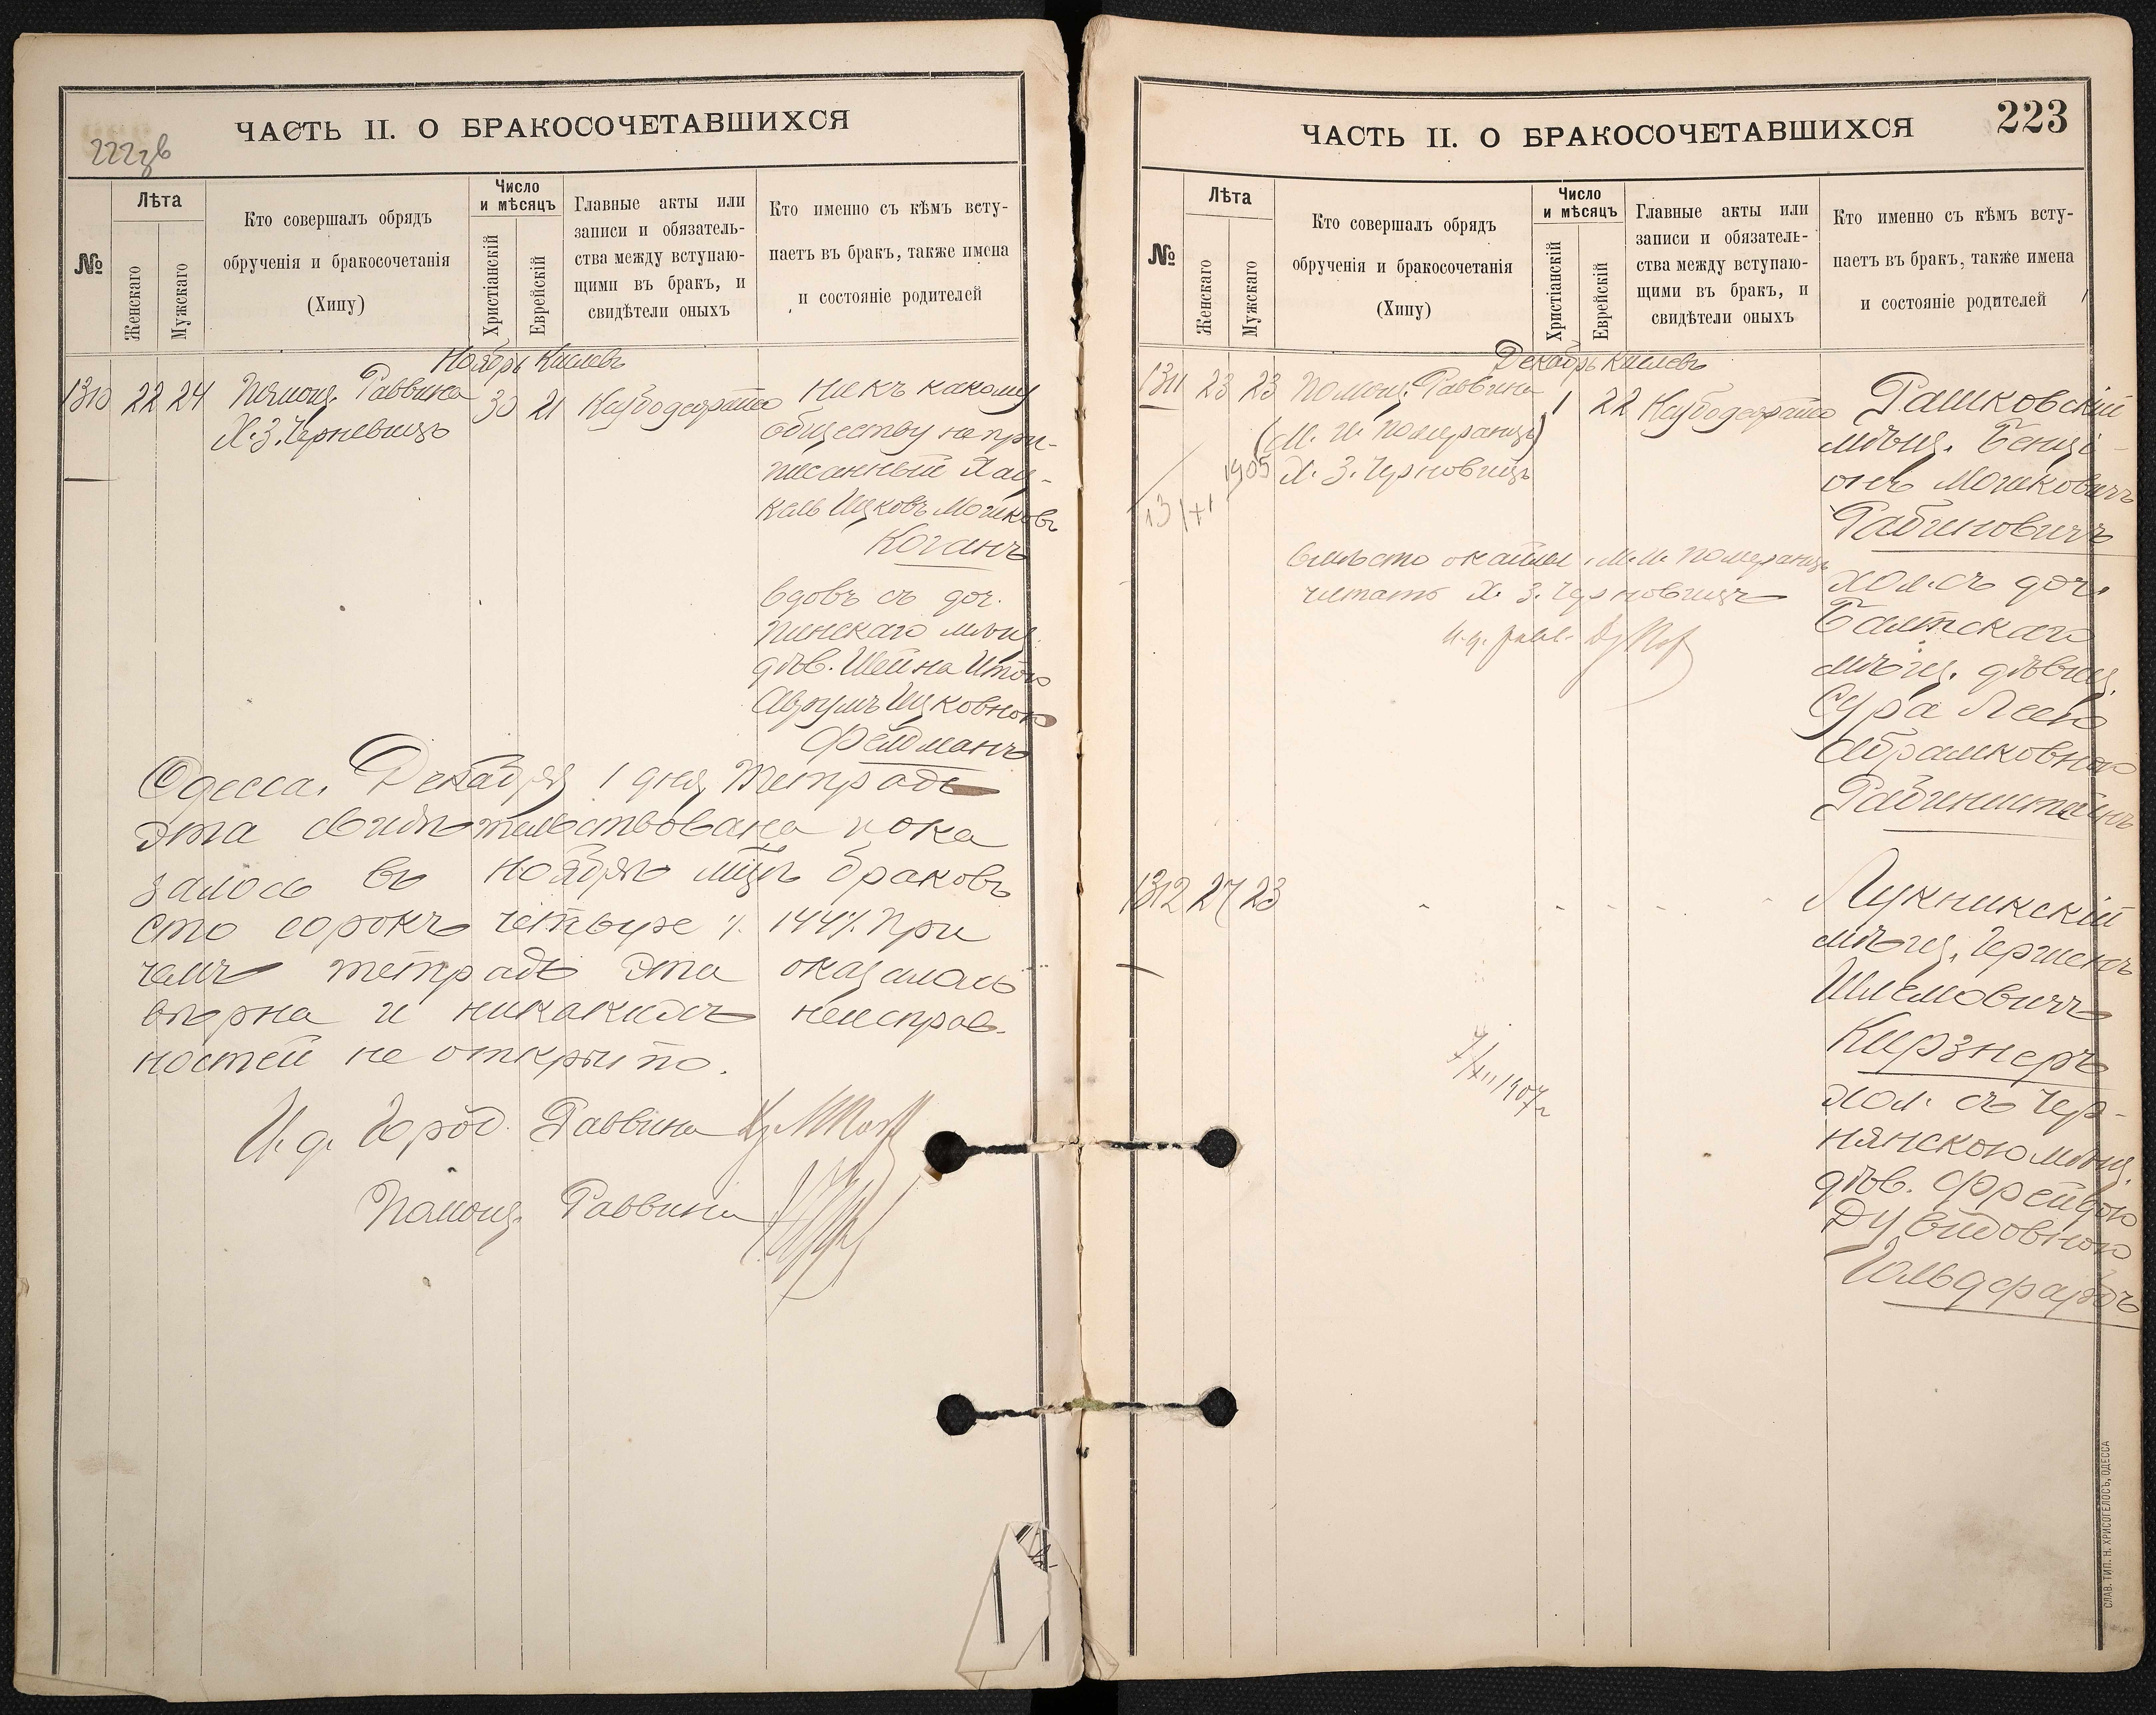 ЧАСТЬ II. О БРАКОСОЧЕТАВШИХСЯ
222зв
№
Лѣта
Женскаго
Мужскаго
Кто совершалъ обрядъ
обрученія и бракосочетанія
(Хипу)
Число
и мѣсяцъ
Христіанскій
Еврейскій
Главные акты или
записи и обязатель-
ства между вступаю-
щими въ бракъ, и
свидѣтели оныхъ
Кто именно съ кѣмъ всту-
паетъ въ бракъ, также имена
и состояніе родителей
Ноябрь Кислевъ
1310 22 24 Помощ. Раввина 30 21
Х. З. Черновицъ
Ни къ какому
обществу не при-
писанный Хац-
кель Ицковъ Мошковъ
Коганъ
вдовъ съ доч.
Пинскаго мѣщ.
дѣв. Шейна Итою
Аврумъ Ицковною
Фельдманъ
Одесса, Декабря 1 дня, Тетрадь
эта свидѣтельствована и ока
залось въ Ноябрѣ мцѣ браковъ
сто сорокъ четыре /. 144/. При
чемъ тетрадь эта оказалась
вѣрна и никакихъ неисправ-
ностей не открыто.
И. д. Город. Раввина
Помощ. Раввина
ЧАСТЬ II. О БРАКОСОЧЕТАВШИХСЯ
223
№
Лѣта
Женскаго
Мужскаго
Кто совершалъ обрядъ
обрученія и бракосочетанія
(Хипу)
Число
и мѣсяцъ
Христіанскій
Еврейскій
Главные акты или
записи и обязатель-
ства между вступаю-
щими въ бракъ, и
свидѣтели оныхъ
Кто именно съ кѣмъ всту-
паетъ въ бракъ, также имена
и состояніе родителей
Декабрь Кислевъ
1311 23 23 Помощ. Раввина 1 22
(М. И. Померанцъ)
Х. З. Черновицъ
13/XI 1905
вмѣсто М. И. Померанцъ
читать Х. З. Черновицъ
И. д. равв.
Рашковскій
мѣщ. Бенці-
онъ Мошковичъ
Рабиновичъ
хол. съ доч.
Балтскаго
мѣщ. дѣвиц.
Сура Леею
Абрамковною
Рабинштейнъ
1312 27 23
7/XII 1907 г
Лукникскій
мѣщ. Гершенъ
Шлемовичъ
Кирзнеръ
хол. съ Чер-
нянскою мѣщ.
дѣв. Фрейдою
Дувидовною
Гольдфарбъ
СЛАВ. ТИП. Н. ХРИСОГЕЛОСЪ, ОДЕССА